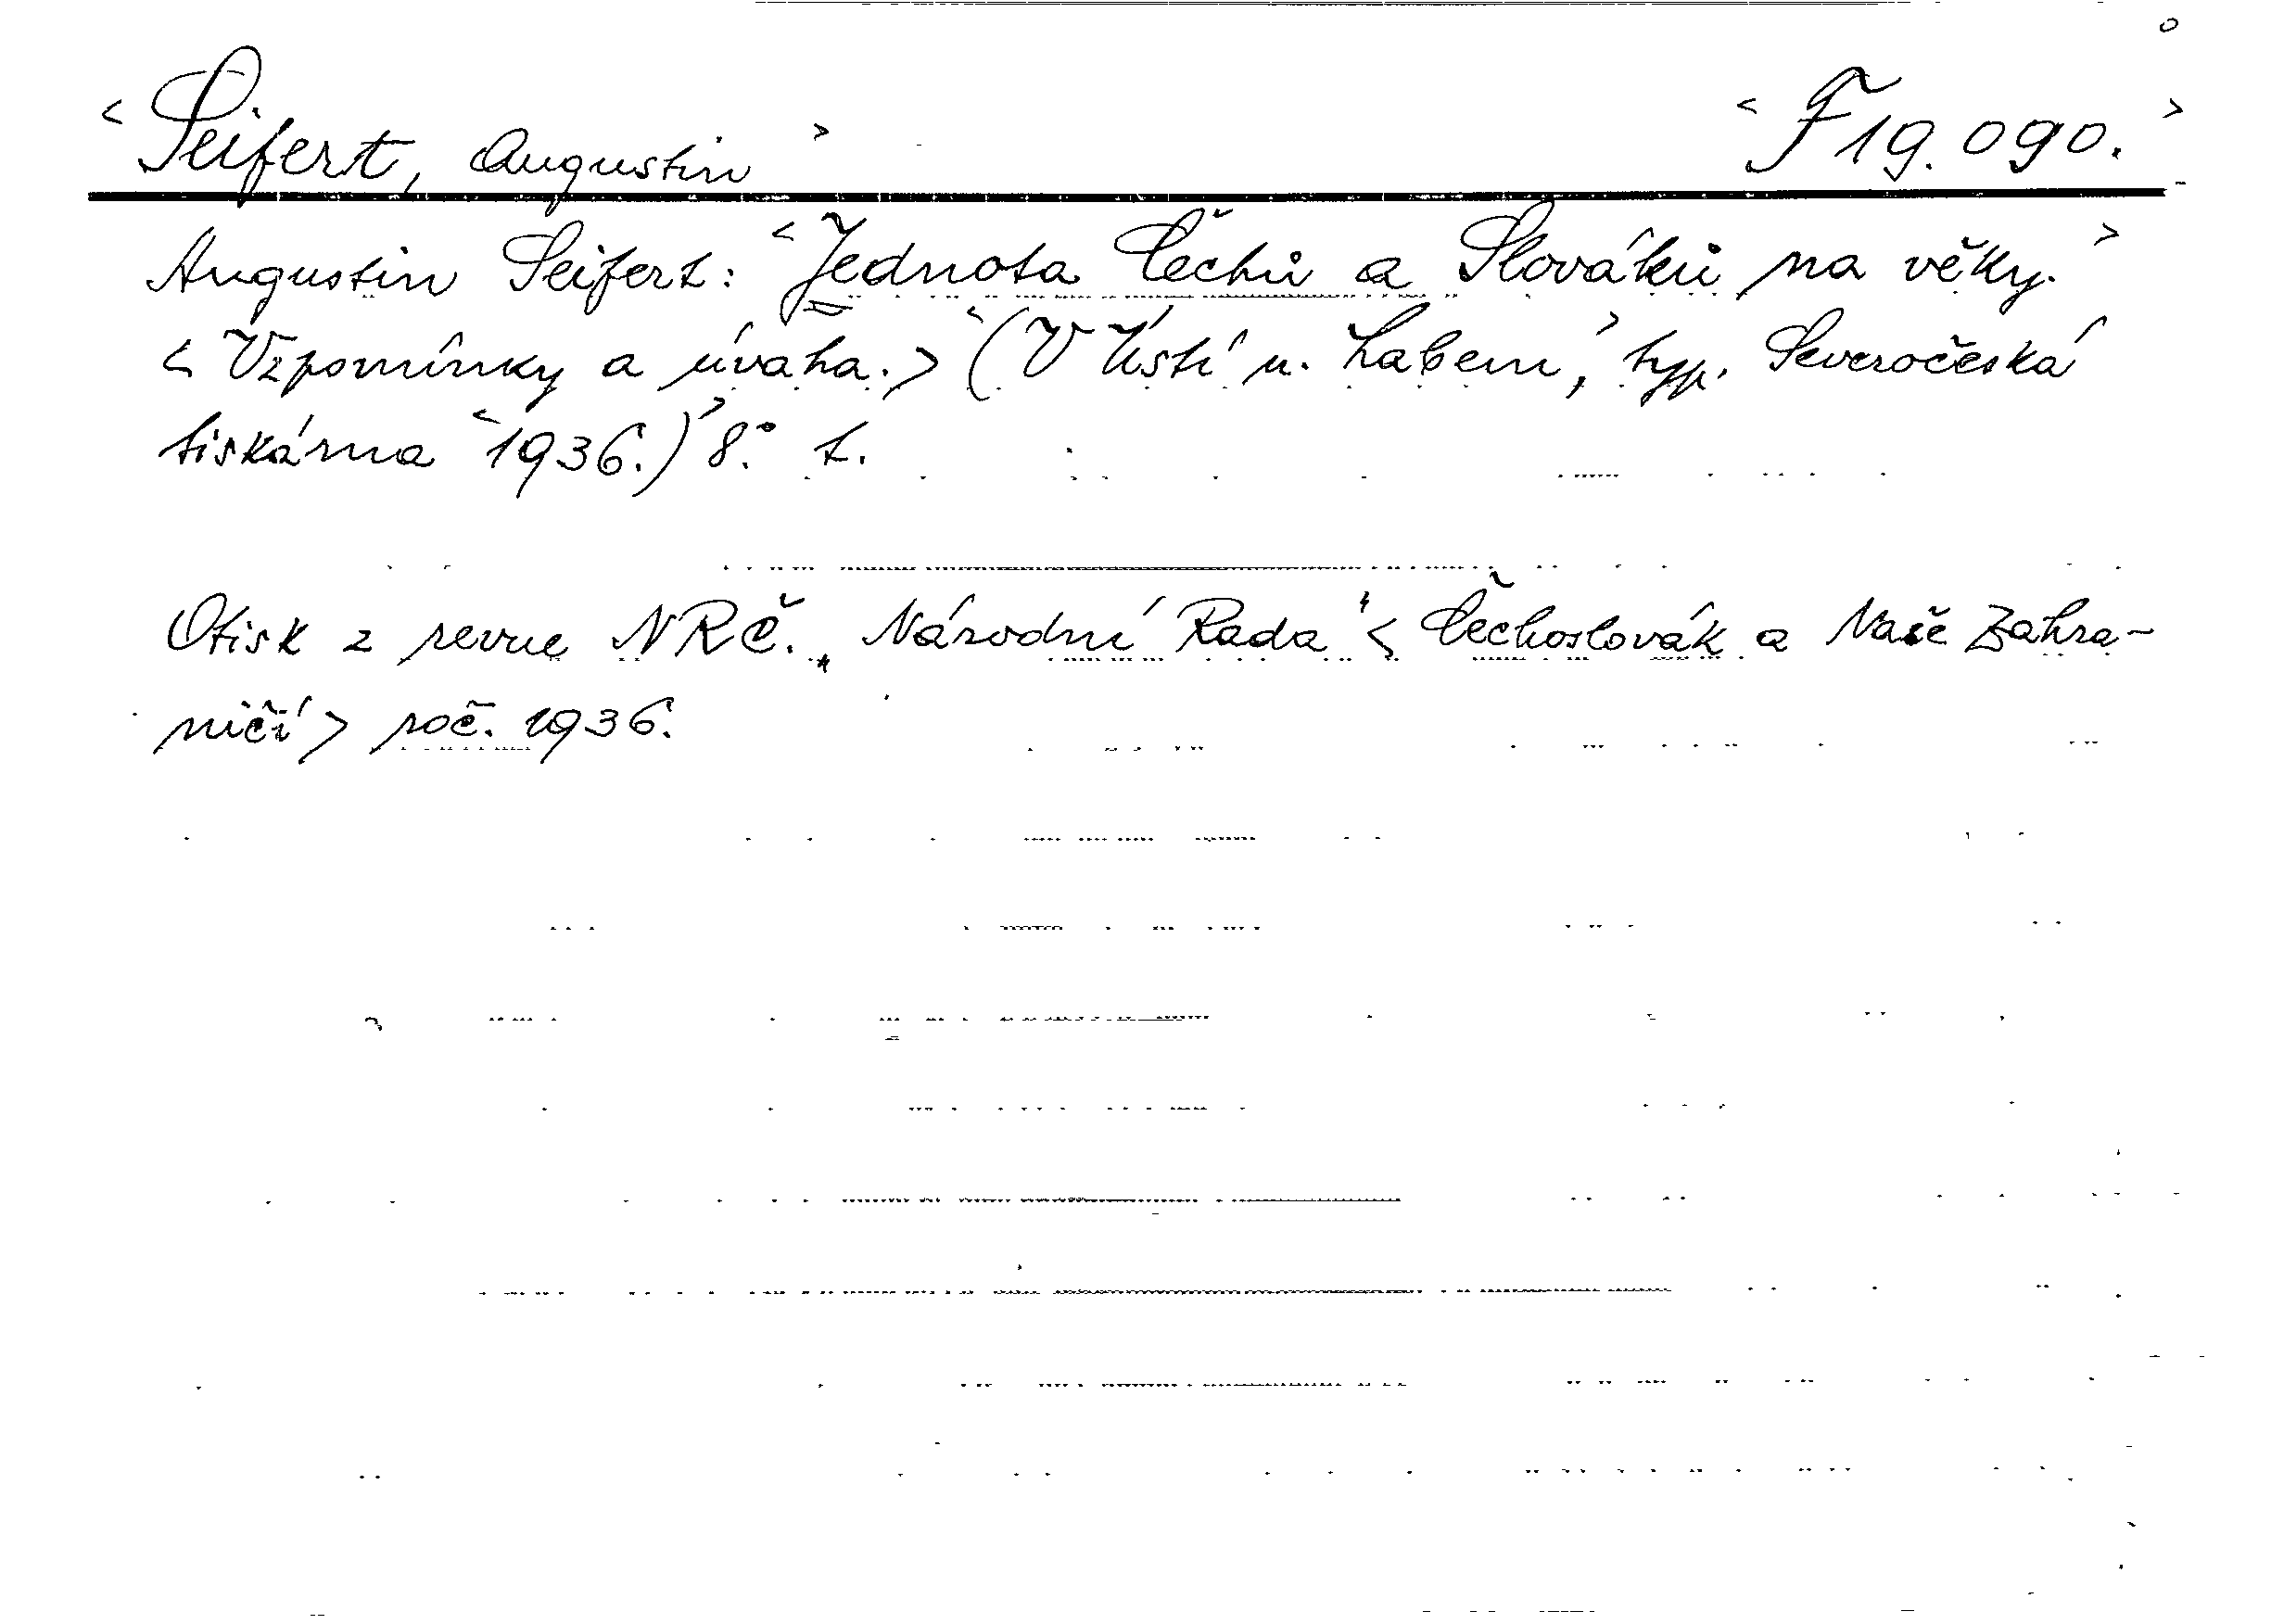 <Seifert, Augustin> <F 19.090.>
Augustin Seifert: <Jednota Čechů a Slováků na věky.>
< Vzpomínky a úvaha. > <(V Ústí n. Labem,> typ. Severočeská
tiskárna <1936.)> 8.° t.
Otisk z revue NRČ. „Národní Rada" < Čechoslovák a Naše Zahra-
ničí > roč. 1936.